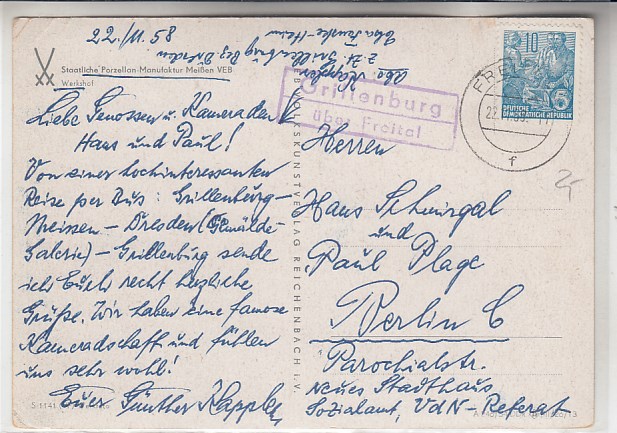 Staatliche Porzellan-Manufaktur Meißen VEB
Werkshof
22/11.58
Abs. Kappler
z. Zt. Grillenburg Bez. Dresden
Liebe Genossen u. Kameraden
Hans und Paul!
Von einer hochinteressanten
Reise per Bus: Grillenburg-
Meissen – Dresden (Gemälde-
Galerie) – Grillenburg sende
ich Euch recht herzliche
Grüße. Wir haben eine famose
Kameradschaft und fühlen
uns sehr wohl!
Euer Günther Kappler
VOLKSKUNSTVERLAG REICHENBACH I. V.
Grillenburg
über Freital
10
5
DEUTSCHE
DEMOKRATISCHE REPUBLIK
f
Herren
Hans Schwirgal
und
Paul Plage
Berlin C
Parochialstr.
Neues Stadthaus
Sozialamt, VdN-Referat